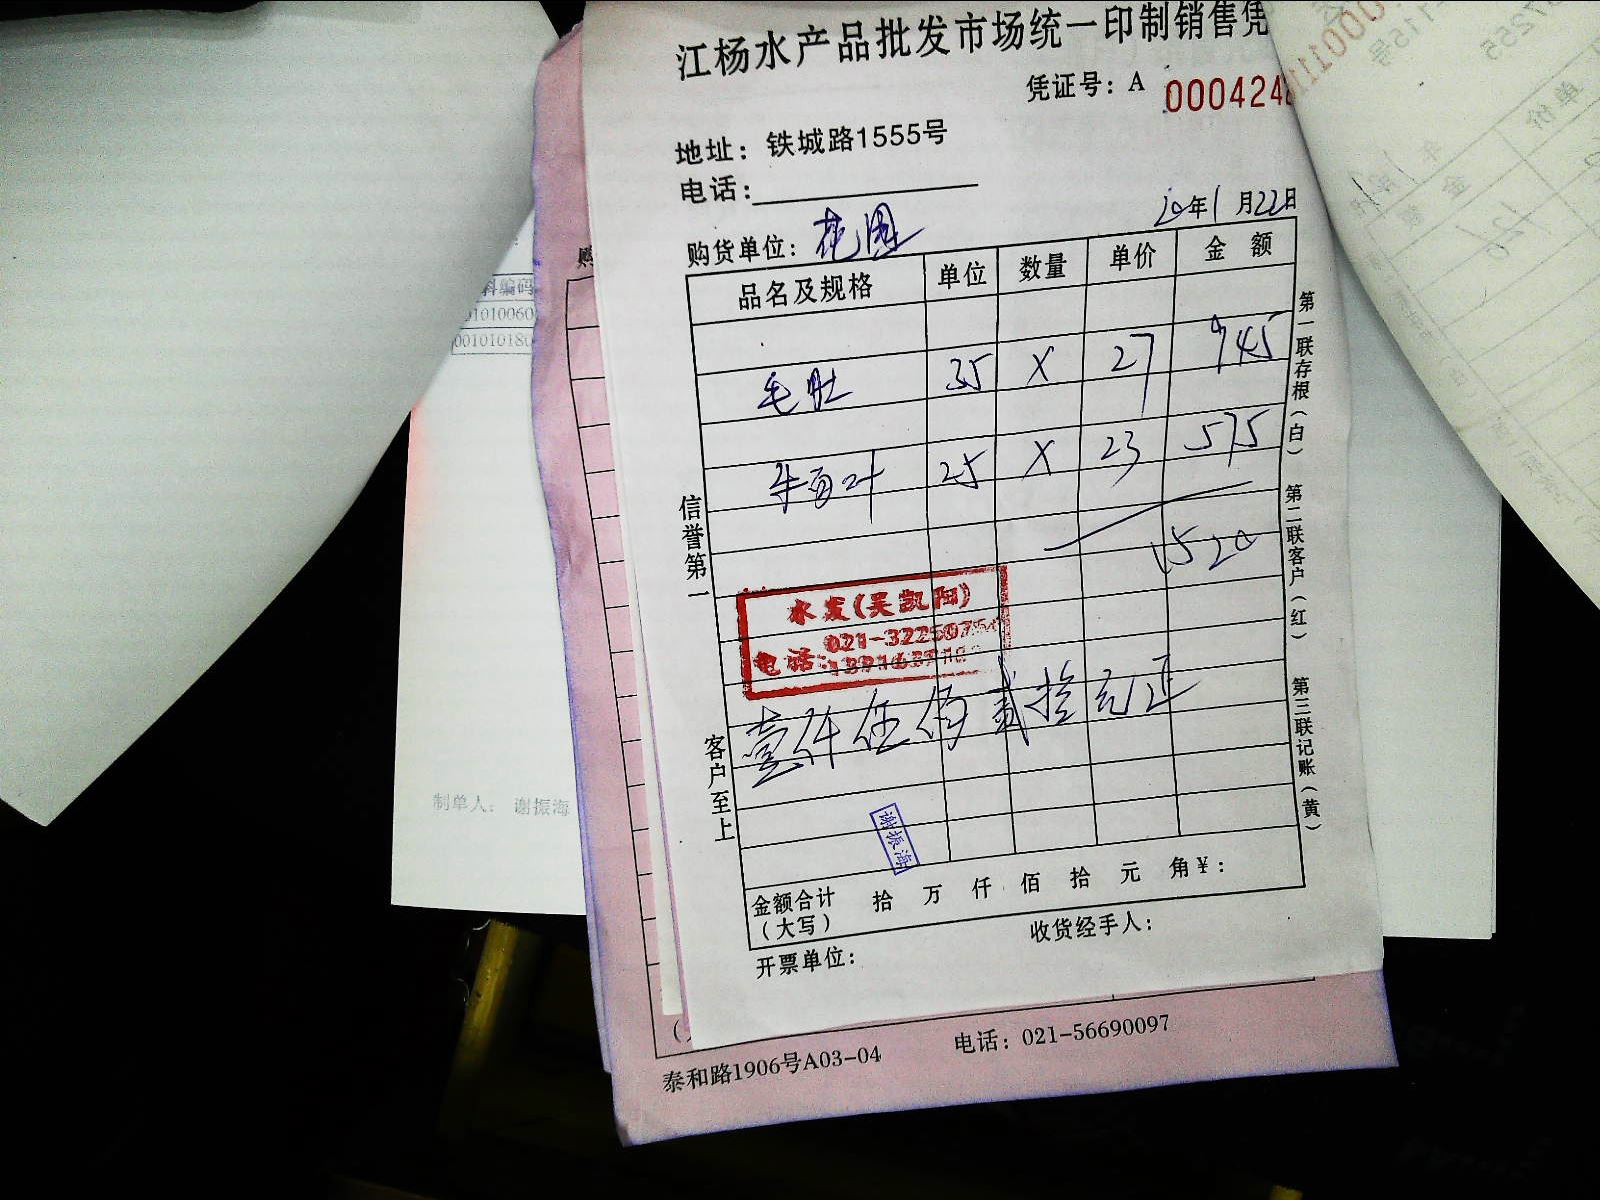 江杨水产品批发市场统一印制销售凭
凭证号：A 000424
地址：铁城路1555号
电话：
购货单位：花園
20年1月22日
品名及规格 单位 数量 单价 金额
毛肚 35 X 27 945
牛百叶 25 X 23 575
1520
水发(吴凯阳)
021-3225075
电话:
壹仟伍佰贰拾元正
谢振海
金额合计 拾 万 仟 佰 拾 元 角 ¥：
（大写）
收货经手人：
开票单位：
信誉第一
客户至上
第一联存根（白）
第二联客户（红）
第三联记账（黄）
泰和路1906号A03-04 电话：021-56690097
料编码
01010060
00101018
制单人： 谢振海
购